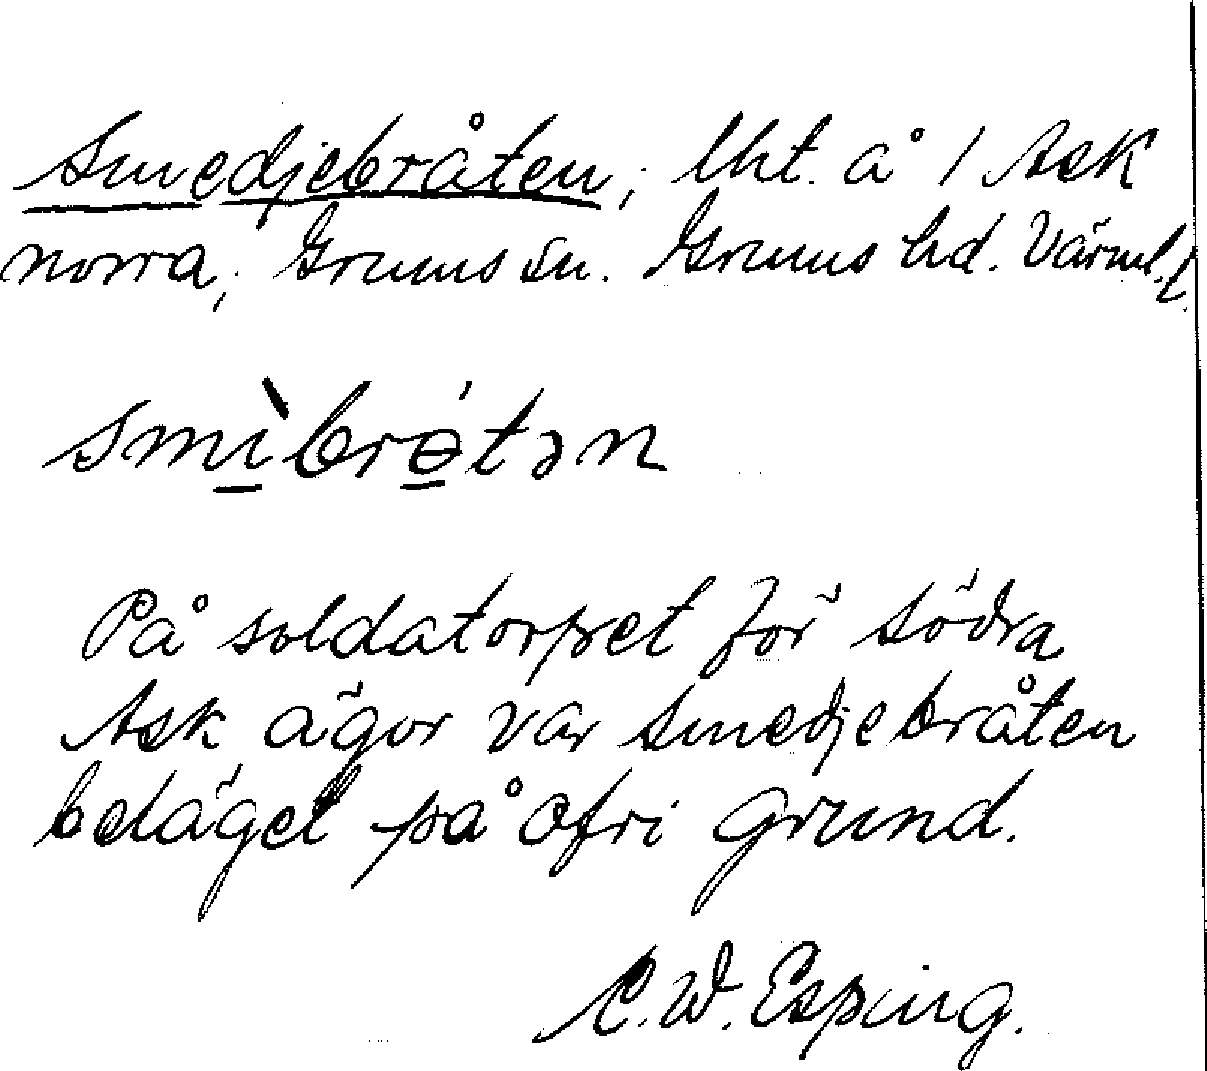 Smedjebråten, lht. å 1 Ask
norra, Grums sn. Grums hd. Värml. l.
smìbrɵ́tən
På soldatorpet för södra
Ask ägor var smedjebråten
beläget på ofri grund.
C. W. Esping.